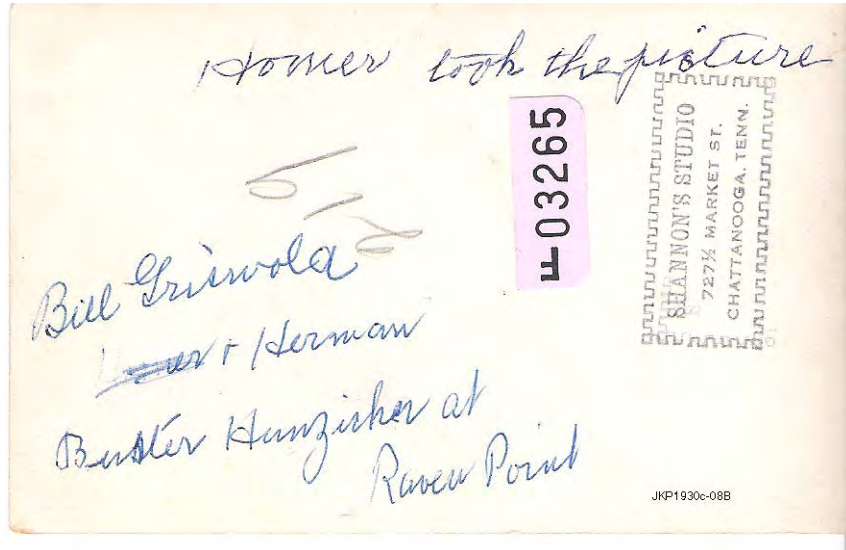 Homer took the picture
SHANNON'S STUDIO
727½ MARKET ST.
CHATTANOOGA, TENN.
F 03265
Bill Griswold
+ Herman
Buster Hunziker at
Raven Point
JKP1930c-08B